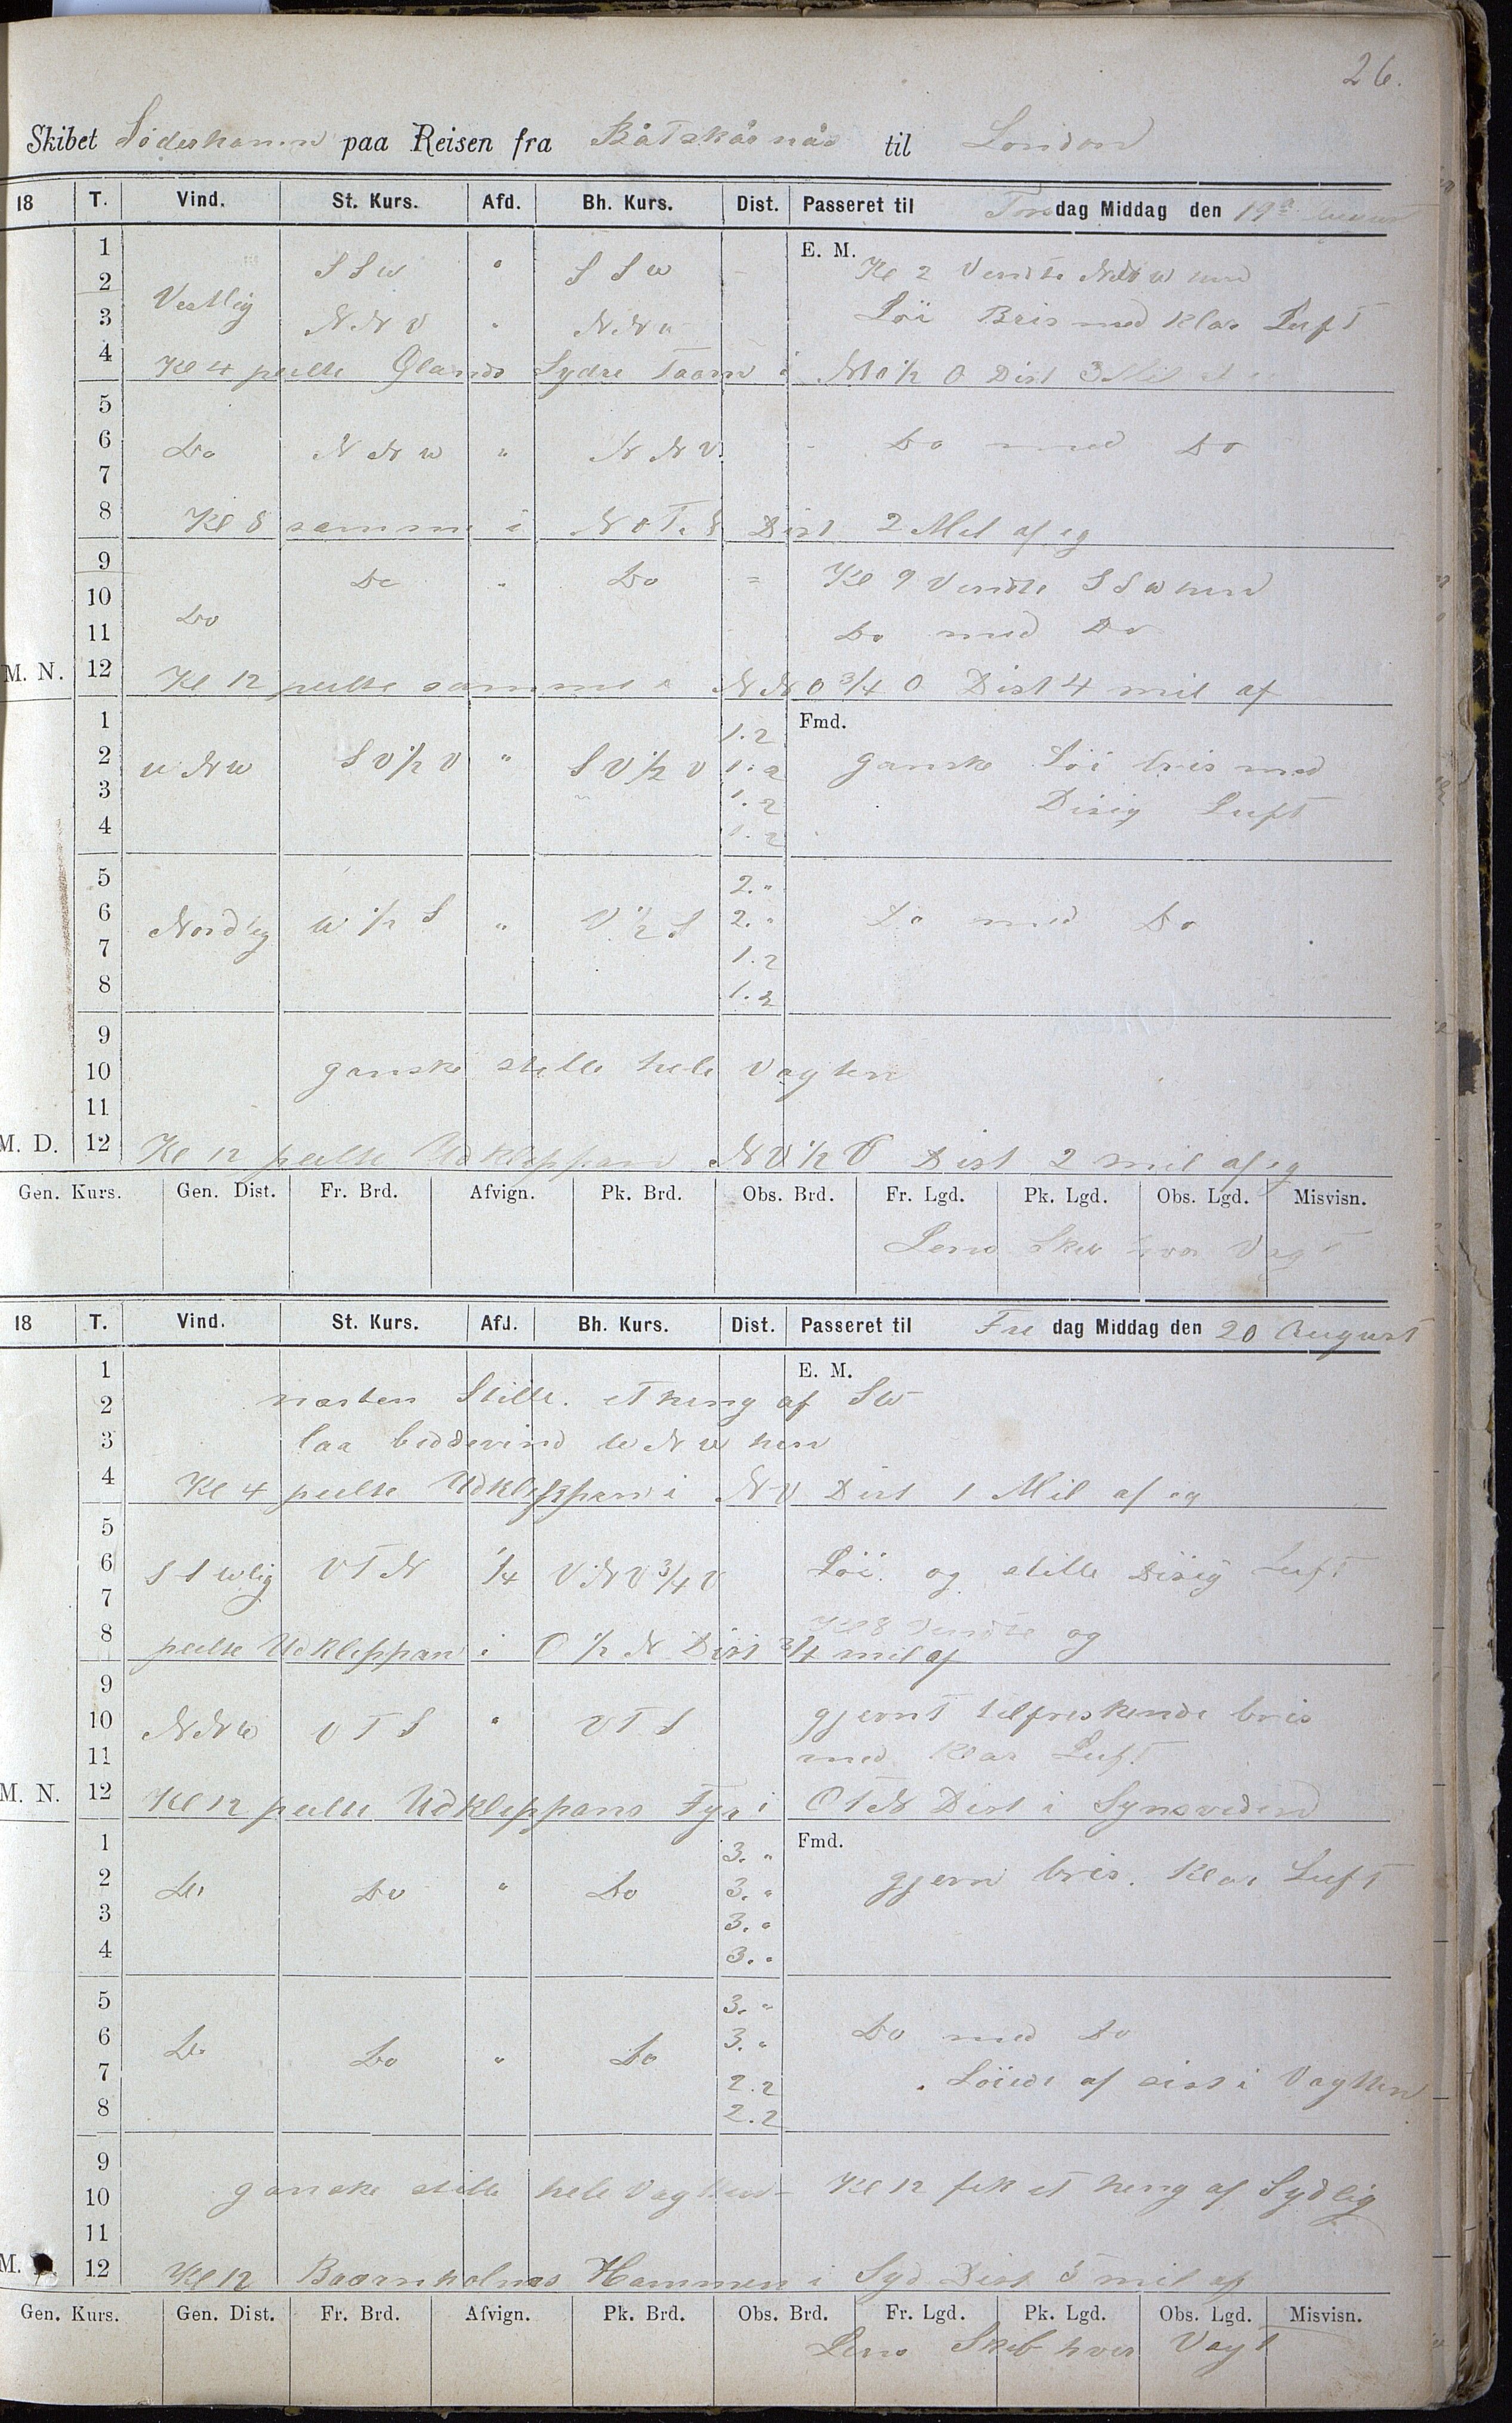 26.
Skibet Söderhamn paa Reisen fra Båtskåsnäs til London
18 T. Vind. St. Kurs. Afd. Bh. Kurs. Dist. Passeret til Torsdag Middag den 19de August
E. M.
1
2 S S W " S S W Kl 2 Vendte NNW hen
3 Vestlig N N V " N N W Löi Bris med Klar Luft
4 Kl 4 peilte Ølands Sydre Taarn i N1/2 O Dist 3 Mil af
5
6 Do N N W " N N V. Do med Do
7
8 Kl 8 samme i N O T. N Dist 2 Mil af eg
9 Do " Do = Kl 9 Vendte S S W hen
10 Do
11 Do med Do
M. N. 12 Kl 12 peilte samme i N N O 3/4 O Dist 4 mil af
Fmd.
1 1.2
2 W N W S V 1/2 V " S V 1/2 V 1.2 ganske Löi bris med
3 1.2 Disig Luft
4 1.2
5 2."
6 Nordlig W 1/2 S " V 1/2 S 2." Do med Do
7 1.2
8 1.2
9
10 ganske stille hele Vagten
11
M. D. 12 Kl 12 peilte Udklippan NV 1/2 V Dist 2 mil af eg
Gen. Kurs. Gen. Dist. Fr. Brd. Afvign. Pk. Brd. Obs. Brd. Fr. Lgd. Pk. Lgd. Obs. Lgd. Misvisn.
Lens Skib hver Vagt
18 T. Vind. St. Kurs. Afd. Bh. Kurs. Dist. Passeret til Fre dag Middag den 20 August
E. M.
1
2 næsten Stille. et heng af SW
3 laa beddevind W N W hen
4 Kl 4 peilte Udklippan i NV Dist 1 Mil af eg
5
6 S S Wlig V T N 1/4 V N V 3/4 V Löi og stille Disig Luft
7
Kl 8 Vendte og
8 peilte Udklippan i O 1/2 N Dist 3/4 mil af
9
10 N N W V T S " V T S gjemt tilfriskende bris
11 med Klar Luft
M. N. 12 Kl 12 peilte Udklippans Fyr i O T N Dist i Synsvidend
Fmd.
1 3."
2 Do Do " Do 3." gjem bris. Klar Luft
3 3."
4 3."
5 3."
6 Do Do " Do 3." Do med Do
7 2.2 Löiede af sist i Vagten
8 2.2
9
10 ganske stille hele Vagten - Kl 12 fik et heng af Sydlig
11
M. 12 Kl 12 Boornholms Hammeren i Syd Dist 5 mil af
Gen. Kurs. Gen. Dist. Fr. Brd. Afvign. Pk. Brd. Obs. Brd. Fr. Lgd. Pk. Lgd. Obs. Lgd. Misvisn.
Lens Skib hver Vagt